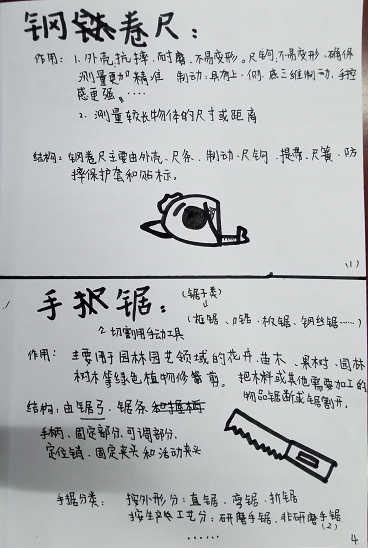 钢铁卷尺:
作用: 1. 外壳抗摔、耐磨、不易变形。尺钩不易变形、确保
测量更加精准 制动:具有上、侧、底三维制动,手控
感更强。····
2. 测量较长物体的尺寸或距离
结构: 钢卷尺主要由外壳、尺条、制动、尺钩、提带、尺簧、防
摔保护套和贴标。
(1)
手板锯:
(锯子类)
(框锯、刀锯、板锯、钢丝锯……)
2. 切割用手动工具
作用: 主要用于园林园艺领域的花卉、苗木、果树、园林
树木等绿色植物修剪。 把木料或其他需要加工的
物品锯断或锯割开。
结构: 由锯弓、锯条
手柄、固定部分、可调部分、
定位销、固定夹头和活动夹头
手据分类: 按外形分:直锯、弯锯、折锯
按生产工艺分:研磨手锯、非研磨手锯
(2)
······
4